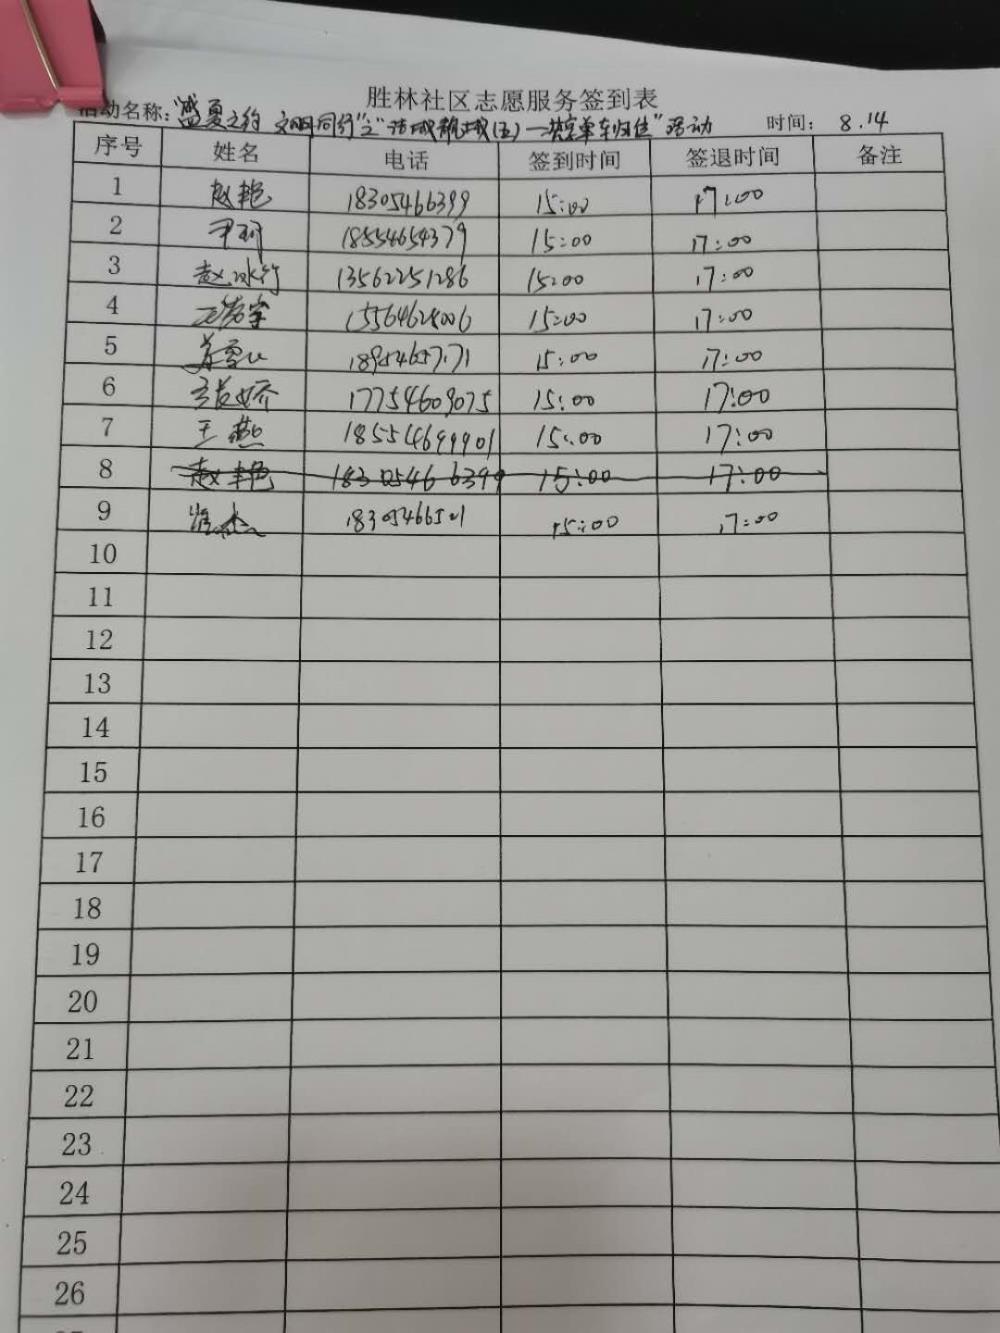 胜林社区志愿服务签到表
活动名称:"盛夏之约 文明同行"之 洁城靓城(五)—共享单车归位"活动 时间: 8.14
序号 姓名 电话 签到时间 签退时间 备注
1 赵艳 18305466399 15:00 17:00
2 尹珂 18554654379 15:00 17:00
3 赵冰行 13562251286 15:00 17:00
4 15:00 17:00
5 18954657171 15:00 17:00
6 17754609075 15:00 17:00
7 王燕 18554699901 15:00 17:00
8 赵艳 18305466399 15:00 17:00
9 18305466501 15:00 17:00
10
11
12
13
14
15
16
17
18
19
20
21
22
23
24
25
26